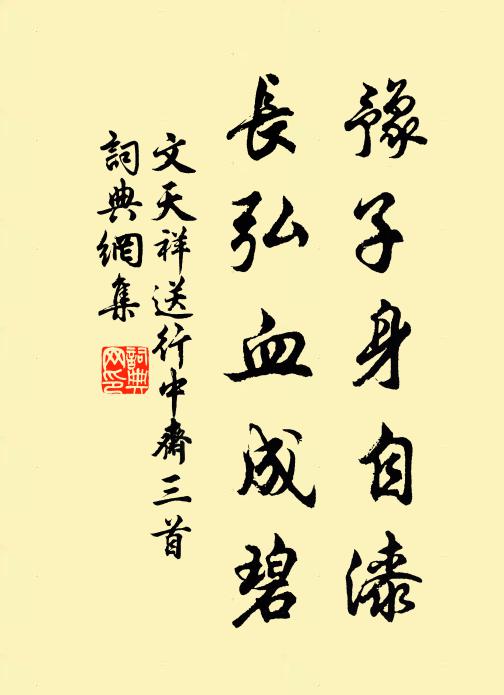 豫子身自漆
長弘血成碧
文天祥送行中齋三首
詞典網集
詞典网印